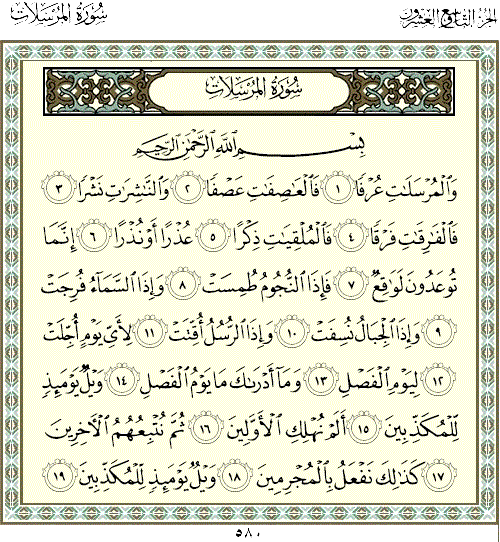 سُورَةُ المُرْسَلَات
الجزء التاسع والعشرون
سُورَةُ المُرْسَلَات
بِسْمِ اللَّهِ الرَّحْمَٰنِ الرَّحِيمِ
وَالْمُرْسَلَاتِ عُرْفًا ١ فَالْعَاصِفَاتِ عَصْفًا ٢ وَالنَّاشِرَاتِ نَشْرًا ٣
فَالْفَارِقَاتِ فَرْقًا ٤ فَالْمُلْقِيَاتِ ذِكْرًا ٥ عُذْرًا أَوْ نُذْرًا ٦ إِنَّمَا
تُوعَدُونَ لَوَاقِعٌ ٧ فَإِذَا النُّجُومُ طُمِسَتْ ٨ وَإِذَا السَّمَاءُ فُرِجَتْ
٩ وَإِذَا الْجِبَالُ نُسِفَتْ ١٠ وَإِذَا الرُّسُلُ أُقِّتَتْ ١١ لِأَيِّ يَوْمٍ أُجِّلَتْ
١٢ لِيَوْمِ الْفَصْلِ ١٣ وَمَا أَدْرَاكَ مَا يَوْمُ الْفَصْلِ ١٤ وَيْلٌ يَوْمَئِذٍ
لِلْمُكَذِّبِينَ ١٥ أَلَمْ نُهْلِكِ الْأَوَّلِينَ ١٦ ثُمَّ نُتْبِعُهُمُ الْآخِرِينَ
١٧ كَذَٰلِكَ نَفْعَلُ بِالْمُجْرِمِينَ ١٨ وَيْلٌ يَوْمَئِذٍ لِلْمُكَذِّبِينَ ١٩
٥٨٠